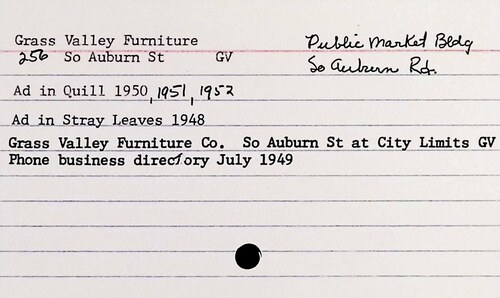 Grass Valley Furniture
256 So Auburn St GV
Public Market Bldg
So Auburn Rd.
Ad in Quill 1950, 1951, 1952
Ad in Stray Leaves 1948
Grass Valley Furniture Co. So Auburn St at City Limits GV
Phone business directory July 1949